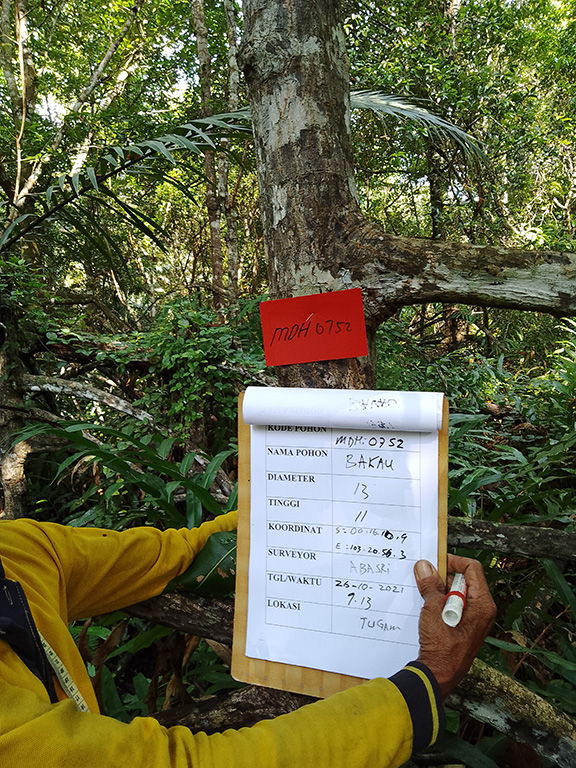 MDH 0752
KODE POHON MDH.0752
NAMA POHON BAKAU
DIAMETER 13
TINGGI 11
KOORDINAT S=00.16.10,9
E:103.20.56.3
SURVEYOR ABASRI
TGL/WAKTU 26-10-2021
9.13
LOKASI TUGAM